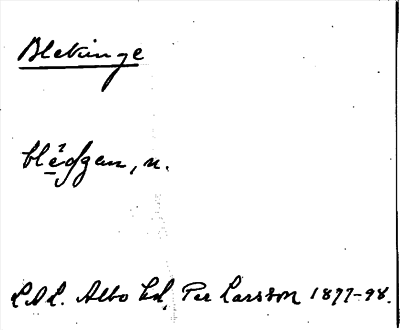 Blekinge
blėdgan, n.
L.A.L. Albo hd, Per Larsson 1877-98.